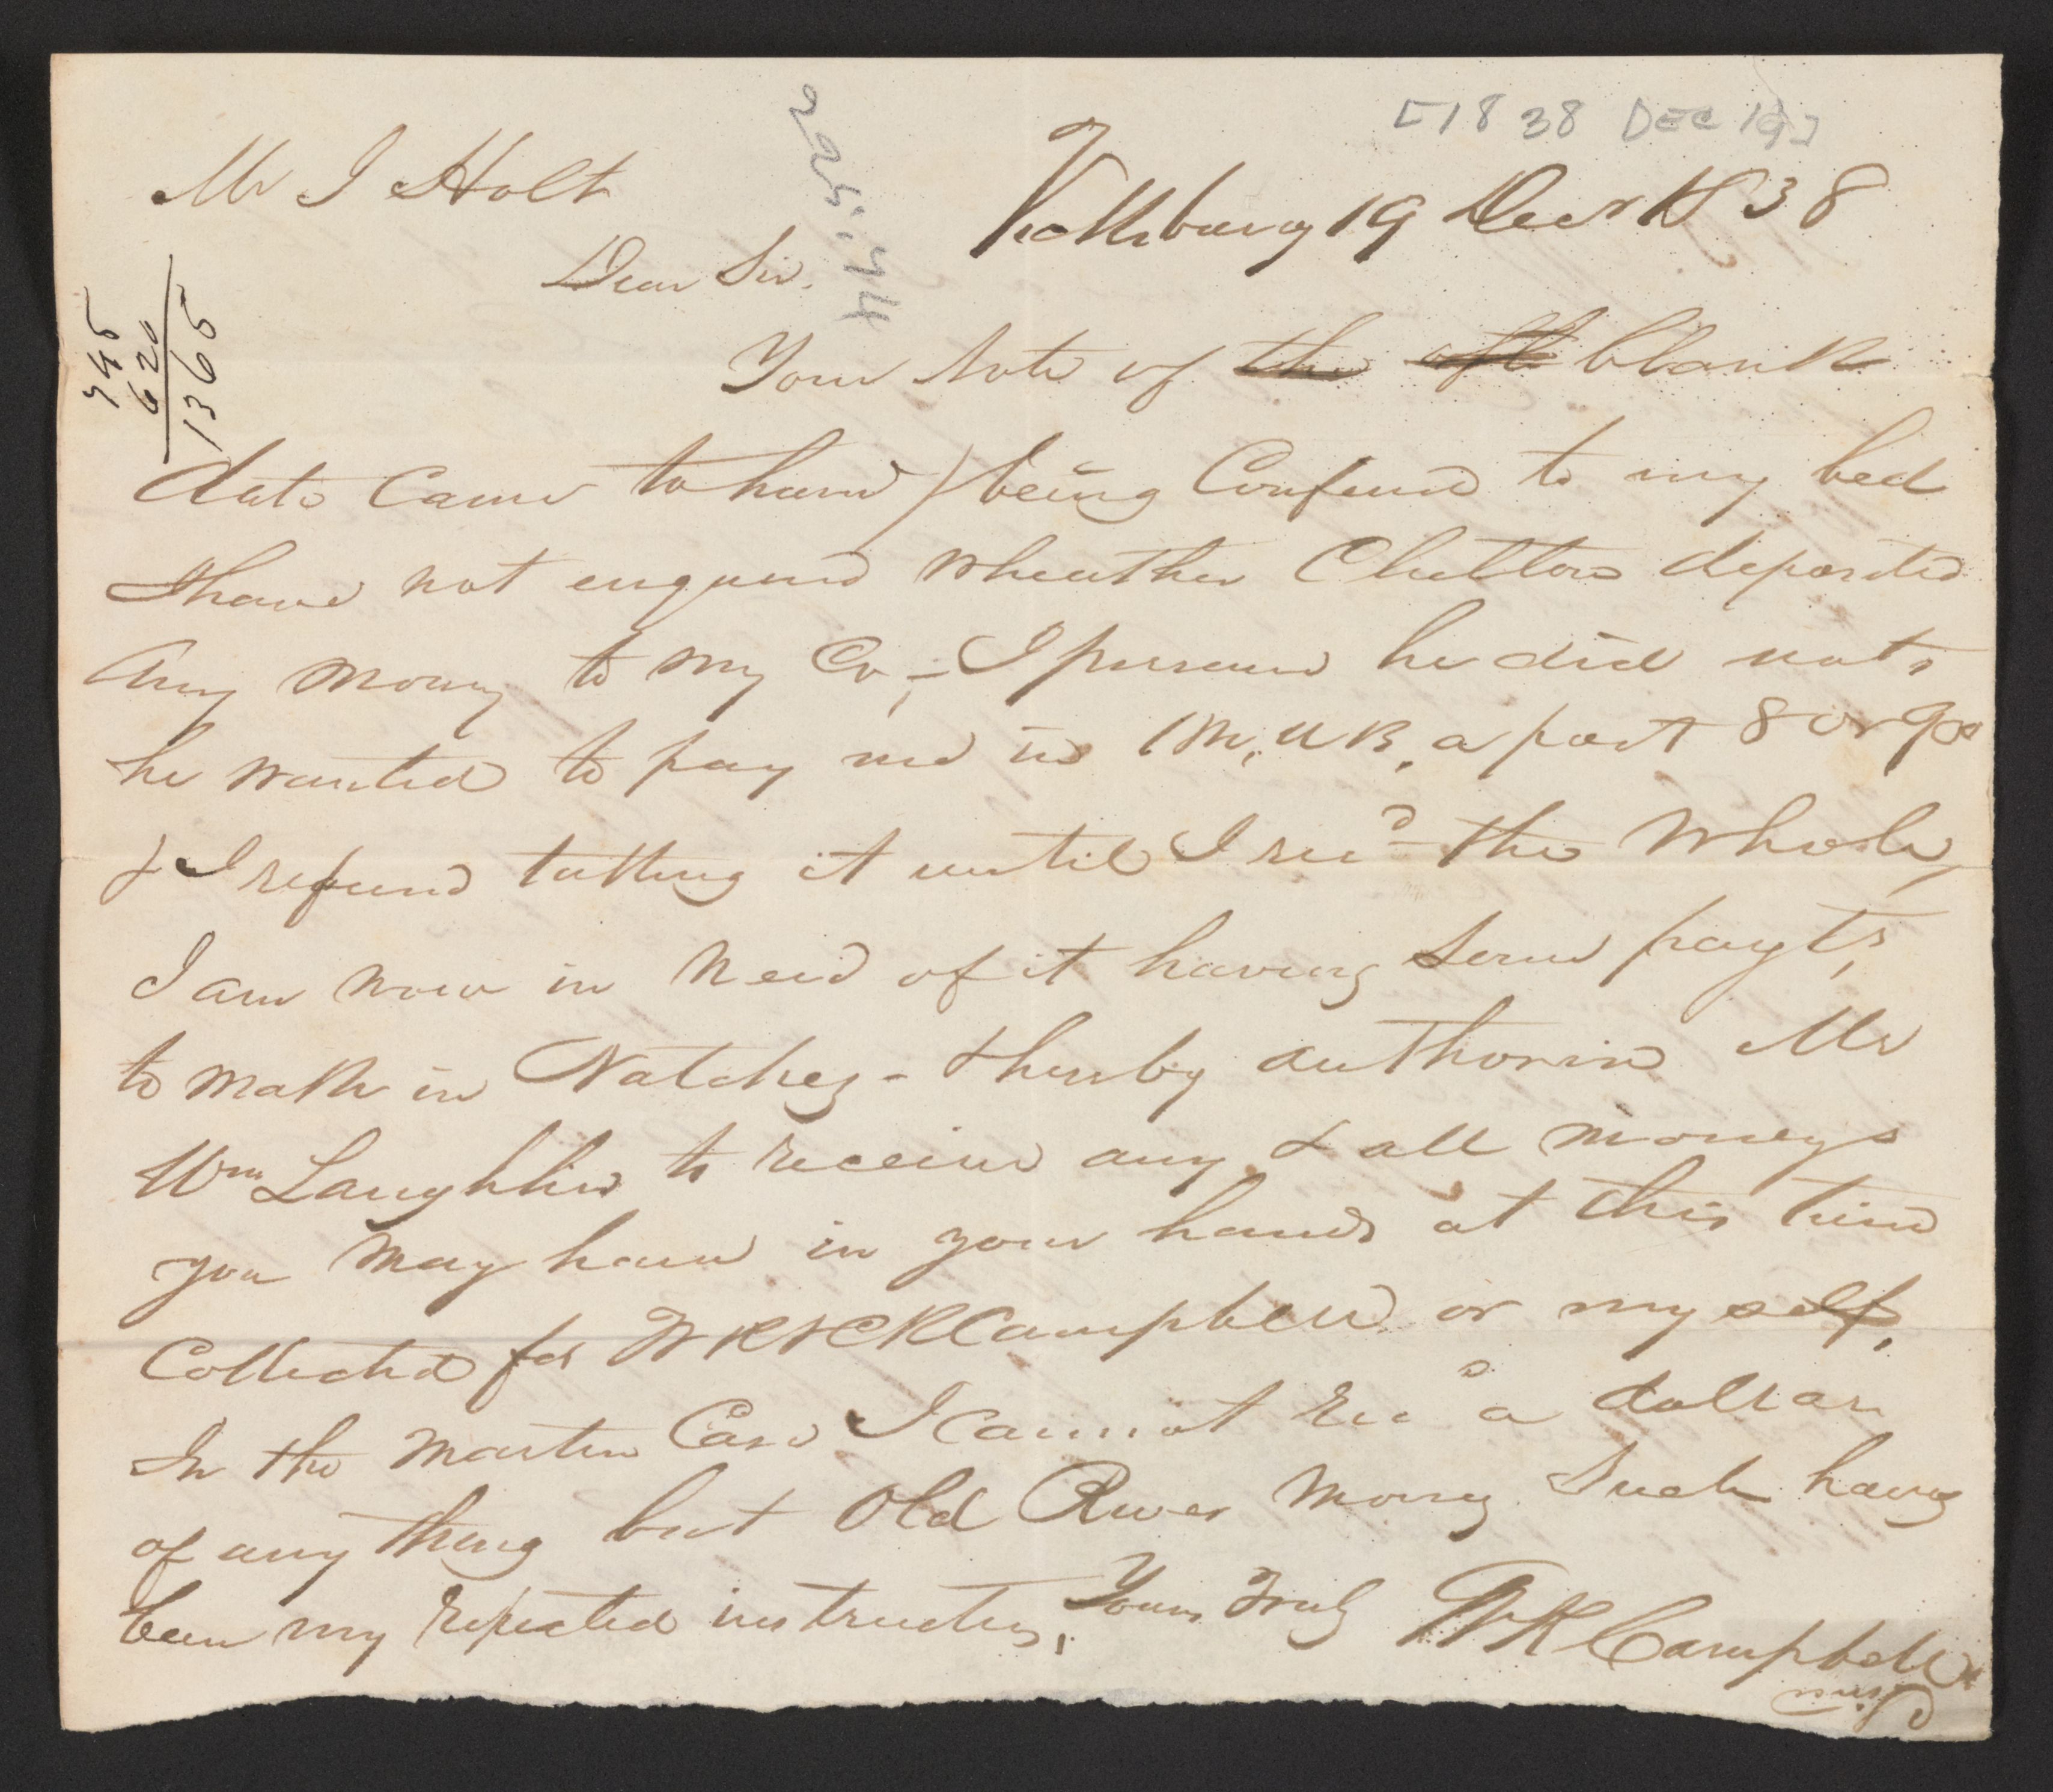 [1838 DEC 19]
Mr J Holt
Vicksburg 19 Decr 1838
Dear Sir.
745
620
1365
Your Note of the blank
date came to hand / being Confined to my bed
I have not enquired wheather deposited
Any money to my Cr,- I presume he did not,
he wanted to pay me in a part 8 or 900
& I refused taking it until I recd the Whole,
I am now in Need of it having Some payts,
to make in Natchez - I hereby authorise Mr
Wm Laughlin to receive any & all moneys
you may have in your hands at this time
Collected for W R & C R Campbell or myself,
In the Martin Case I cannot rec a dollar
of any thing but Old River Money Such having
been my repeated instructions, Yours Truly W R Campbell